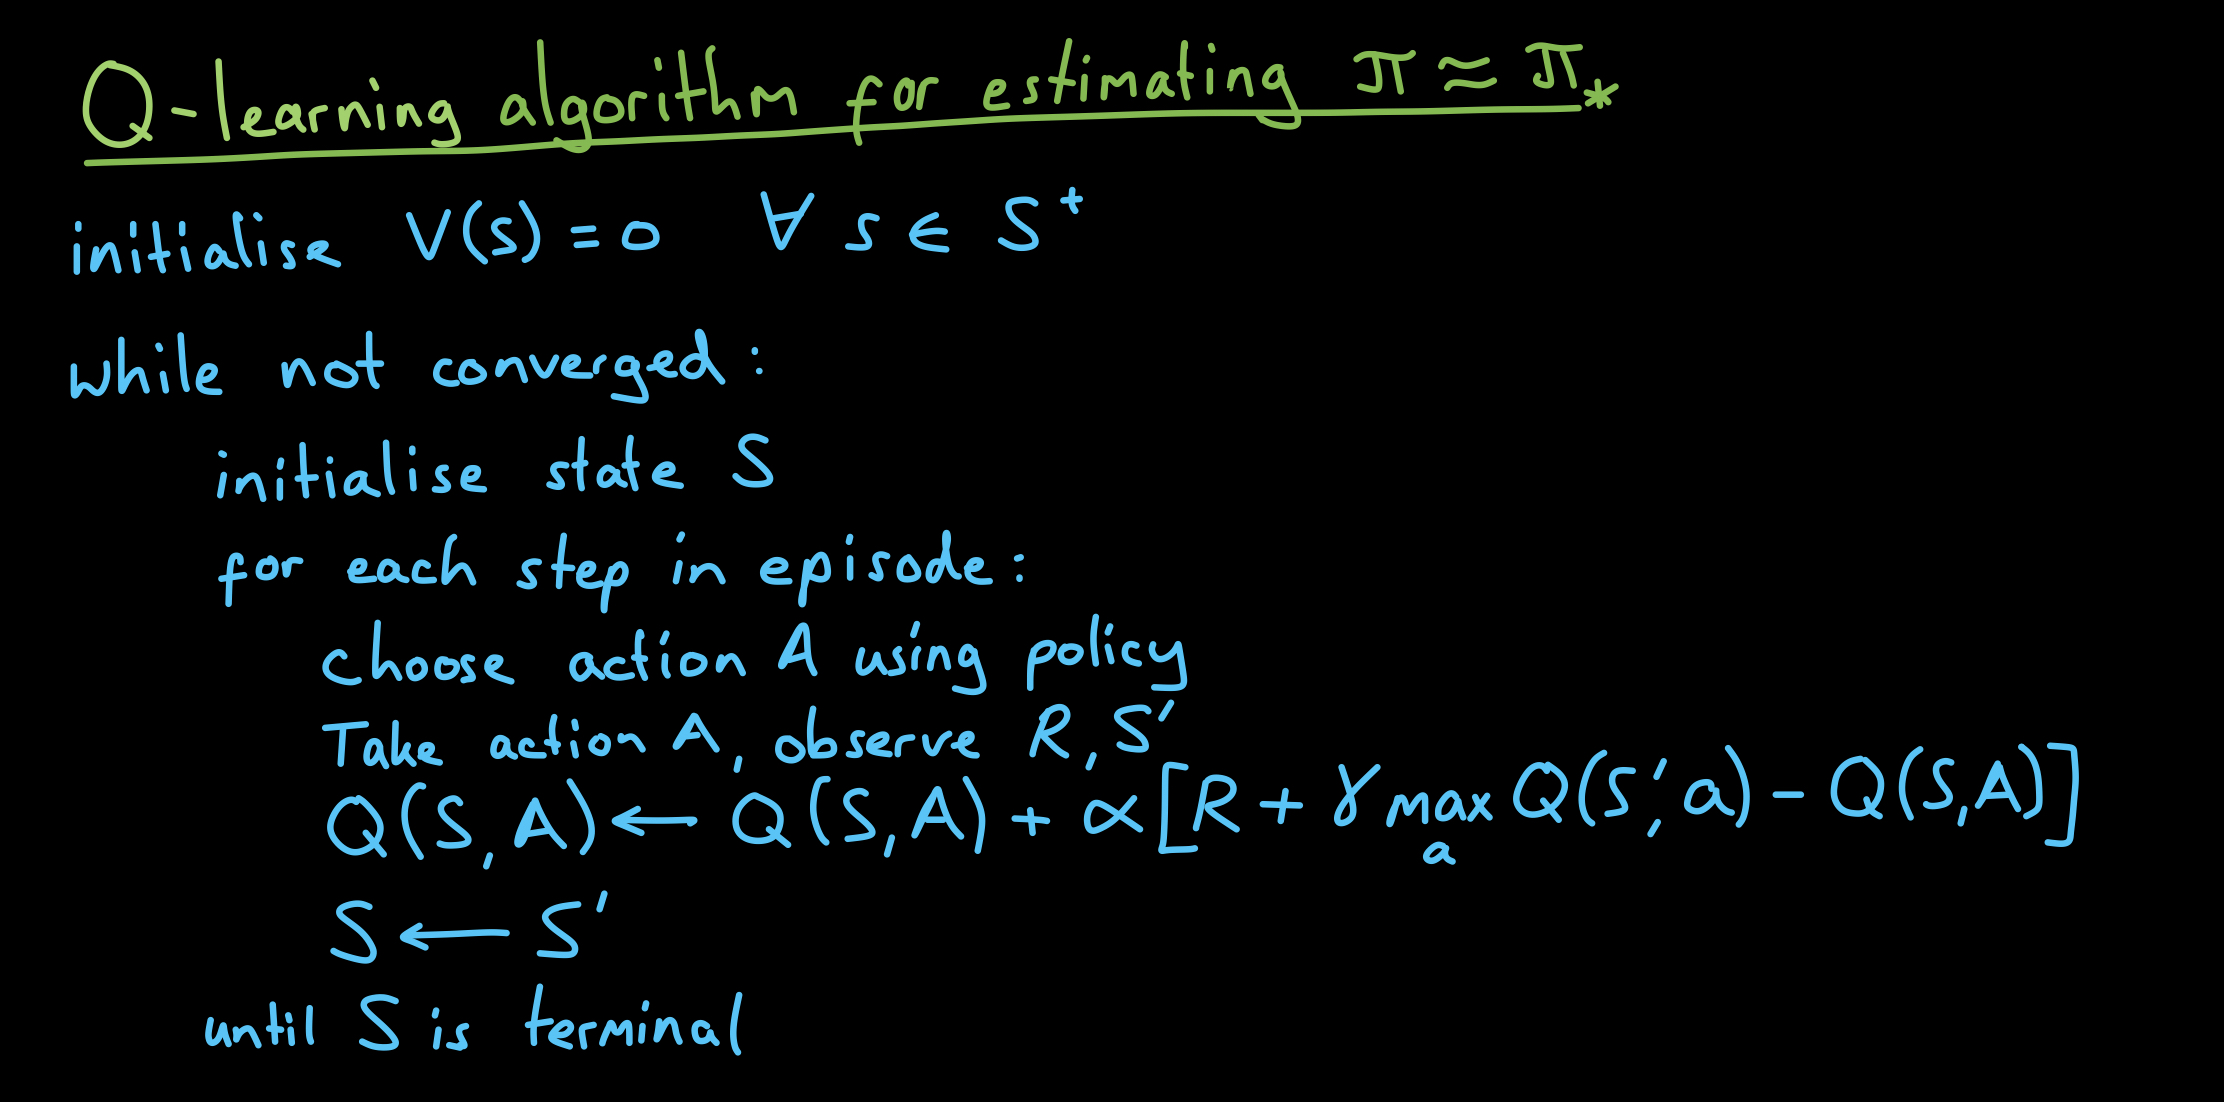 Q-learning algorithm for estimating π ≈ π*
initialise V(s) = 0 ∀ s ∈ S⁺
while not converged:
initialise state S
for each step in episode:
choose action A using policy
Take action A, observe R, S'
Q(S, A) ← Q(S, A) + α[R + γ max_a Q(S', a) - Q(S, A)]
S ← S'
until S is terminal